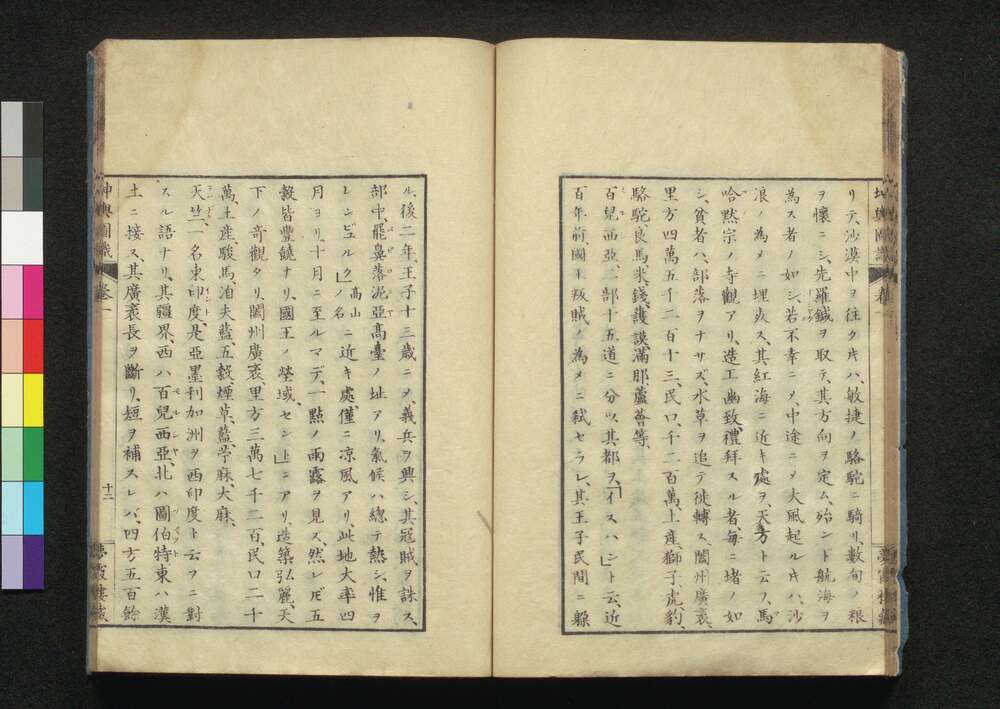 リテ、沙漠中ヲ往クキハ、敏捷ノ駱駝ニ騎リ、数旬ノ粮
ヲ懐ニシ、先羅鍼ヲ取テ、其方向ヲ定ム、殆ンド航海ヲ
為ス者ノ如シ、若不幸ニメ、中途ニメ大風起ルキハ、沙
浪ノ為メニ埋メラス、其紅海ニ近キ處ヲ、天方ト云フ、馬
哈黙宗ノ寺觀アリ、造工幽致、禮拜スル者、毎ニ堵ノ如
シ、貧者ハ、部落ヲナサズ、水草ヲ追テ徙轉ス、闔州廣袤、
里方四萬五千二百十三、民口、千二百萬、土産、獅子、虎、豹、
駱駝、良馬、米、錢、護謨、滿那、蘆薈等、
百兒西亞、二部十五道ニ分ツ、其都ヲ、「イスハン」ト云、近
百年前、國王叛賊ノ為メニ弑セラレ、其王子民間ニ躱
ル、後二年、王子十三歳ニメ、義兵ヲ興シ、其冠賊ヲ誅ス、
部中、罷鼻落泥亞高臺ノ址アリ、氣候ハ總テ熱シ、惟ヲ
レンビュルク」高山ノ名ニ近キ處、僅ニ凉風アリ、此地大率四
月ヨリ、十月ニ至ルマデ、一點ノ雨露ヲ見ス、然レ𪜈五
穀皆豐饒ナリ、國王ノ塋域、セントニアリ、造築弘麗、天
下ノ奇觀タリ、闔州廣袤、里方三萬七千二百、民口二千
萬、土産、駿馬、洎夫藍、五穀、煙草、藍、苧麻、大麻、
天竺、一名東印度、是亞墨利加洲ヲ西印度ト云フニ對
スル語ナリ、其疆界、西ハ百兒西亞、北ハ圖伯特、東ハ漢
土ニ接ス、其廣袤長ヲ斷リ、短ヲ補スレバ、四方五百餘
坤輿圖識
卷一
十二
夢霞樓藏